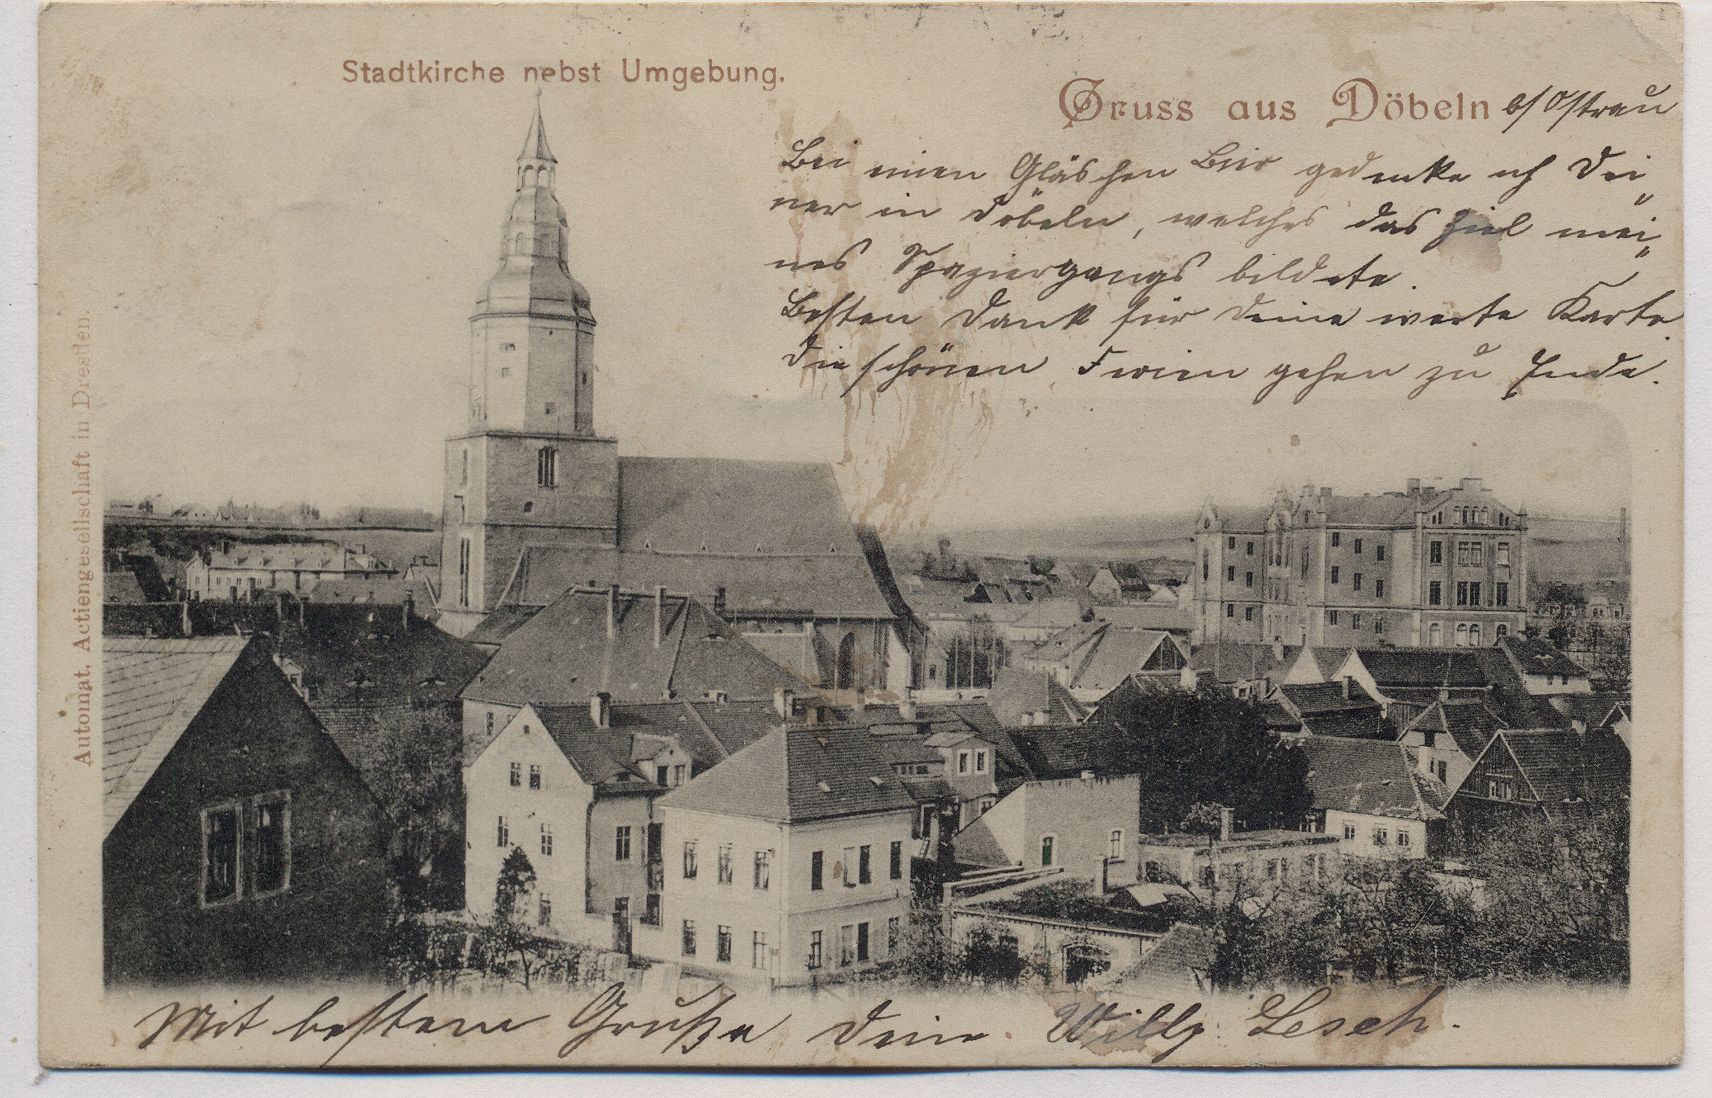 Stadtkirche nebst Umgebung.
Gruss aus Döbeln b/Ostrau
Bei einen Gläschen Bier gedenke ich Dei„
ner in Döbeln, welches das Ziel mei„
nes Spaziergangs bildete.
Besten Dank für Deine werte Karte
die schönen Ferien gehen zu Ende.
Automat, Actiengesellschaft in Dresden.
Mit bestem Gruße Dein Willy Lesch.